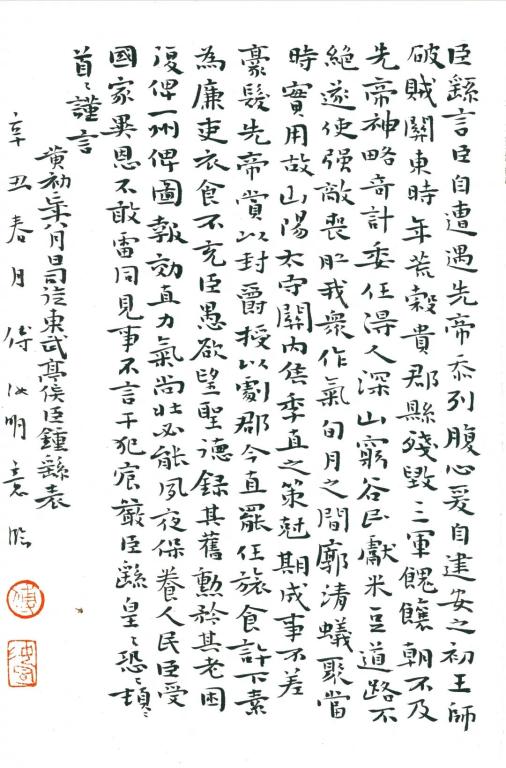 臣繇言臣自遭遇先帝忝列腹心爰自建安之初王師
破賊關東時年荒穀貴郡縣殘毀三軍餽饟朝不及
先帝神略奇計委任得人深山窮谷民獻米豆道路不
絕遂使强敵喪膽我衆作氣旬月之間廓清蟻聚當
時實用故山陽太守關內侯季直之策尅期成事不差
豪髮先帝賞以封爵授以劇郡今直罷任旅食許下素
為廉吏衣食不充臣愚欲望聖德録其舊勳矜其老困
復俾一州俾圖報効直力氣尚壯必能夙夜保養人民臣受
國家異恩不敢雷同見事不言干犯宸嚴臣繇皇〻恐〻頓〻
首〻謹言
黃初二年八月日司徒東武亭侯臣鍾繇表
辛丑春月 明意臨